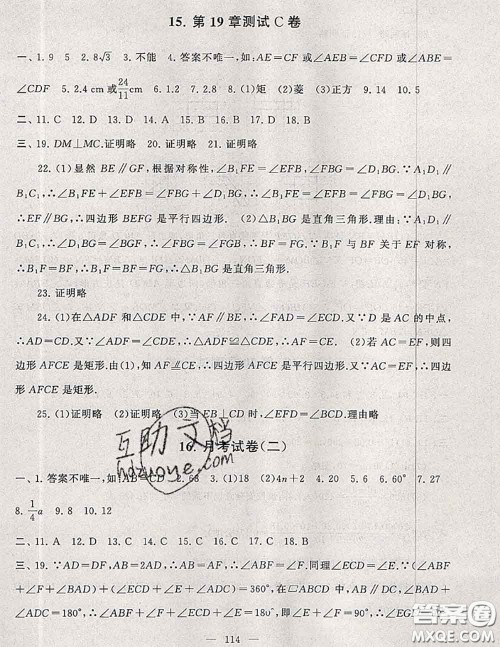 15. 第19章测试C卷
一、1.9 5 2.8√3 3.不能 4.答案不唯一,如:AE=CF或∠AEB=∠CFD或∠ABE=
∠CDF 5.2.4 cm或24/11cm 6.1.2 7.2.8 8.(1)矩 (2)菱 (3)正方 9.14 10.5
二、11.C 12.D 13.D 14.A 15.D 16.D 17.D 18.B
三、19.DM⊥MC.证明略 20.证明略 21.证明略
22.(1)显然BE∥GF,根据对称性,∠B₁FE=∠EFB,∠FBG=∠FDG.又∵A₁D₁∥
B₁C₁,∴∠B₁FE+∠EFB=∠FBG+∠D₁BG,∴∠B₁FE=∠EFB=∠FBG=∠D₁BG,
∴EF∥BG,∴四边形BEFG是平行四边形. (2)△B₁BG是直角三角形.理由:∵A₁D₁∥
B₁C₁,∴四边形BEFG是平行四边形,∴BF=FG,∠FBG=∠FGB.∵B₁F与BF关于EF对称,
∴B₁F=BF=FG,∴∠B₁BG是直角三角形.
23.证明略
24.(1)在△ADF和△CDE中,∵AF∥BE,∴∠FAD=∠ECD.又∵D是AC的中点,
∴AD=CD.又∵∠ADF=∠CDE,∴△ADF≌△CDE. (2)若AC=EF,则四
边形AFCE是矩形.由(1),知AF⫽CE,∴四边形AFCE是平行四边形.又∵AC=EF,∴四边
形AFCE是矩形.
25.(1)证明略 (2)证明略 (3)当EB⊥CD时,∠EFD=∠BCD.理由略
16.月考试卷(二)
一、1.答案不唯一,如:AB=CD 2.68 3.(1)18 (2)4n+2 4.20 5.2 6.60° 7.27
8.1/4a 9.8 10.12
二、11.C 12.A 13.C 14.D 15.C 16.D 17.D 18.B
三、19.∵AD=DF,∴AB=AD=DF,∴∠AFD=∠FAD.同理∠ECD=∠E.∵(∠AFD+
∠FAD+∠BAD)+(∠ECD+∠E+∠ADC)=360°,在▱ABCD中,∠BAD+
∠ADC=180°,∴∠F+∠FAD+∠ECD+∠E=180°,即∠E+∠F=90°,∴∠EG
— 114 —
互助文档
hdzuoye.com
答案圈
MXQE.COM